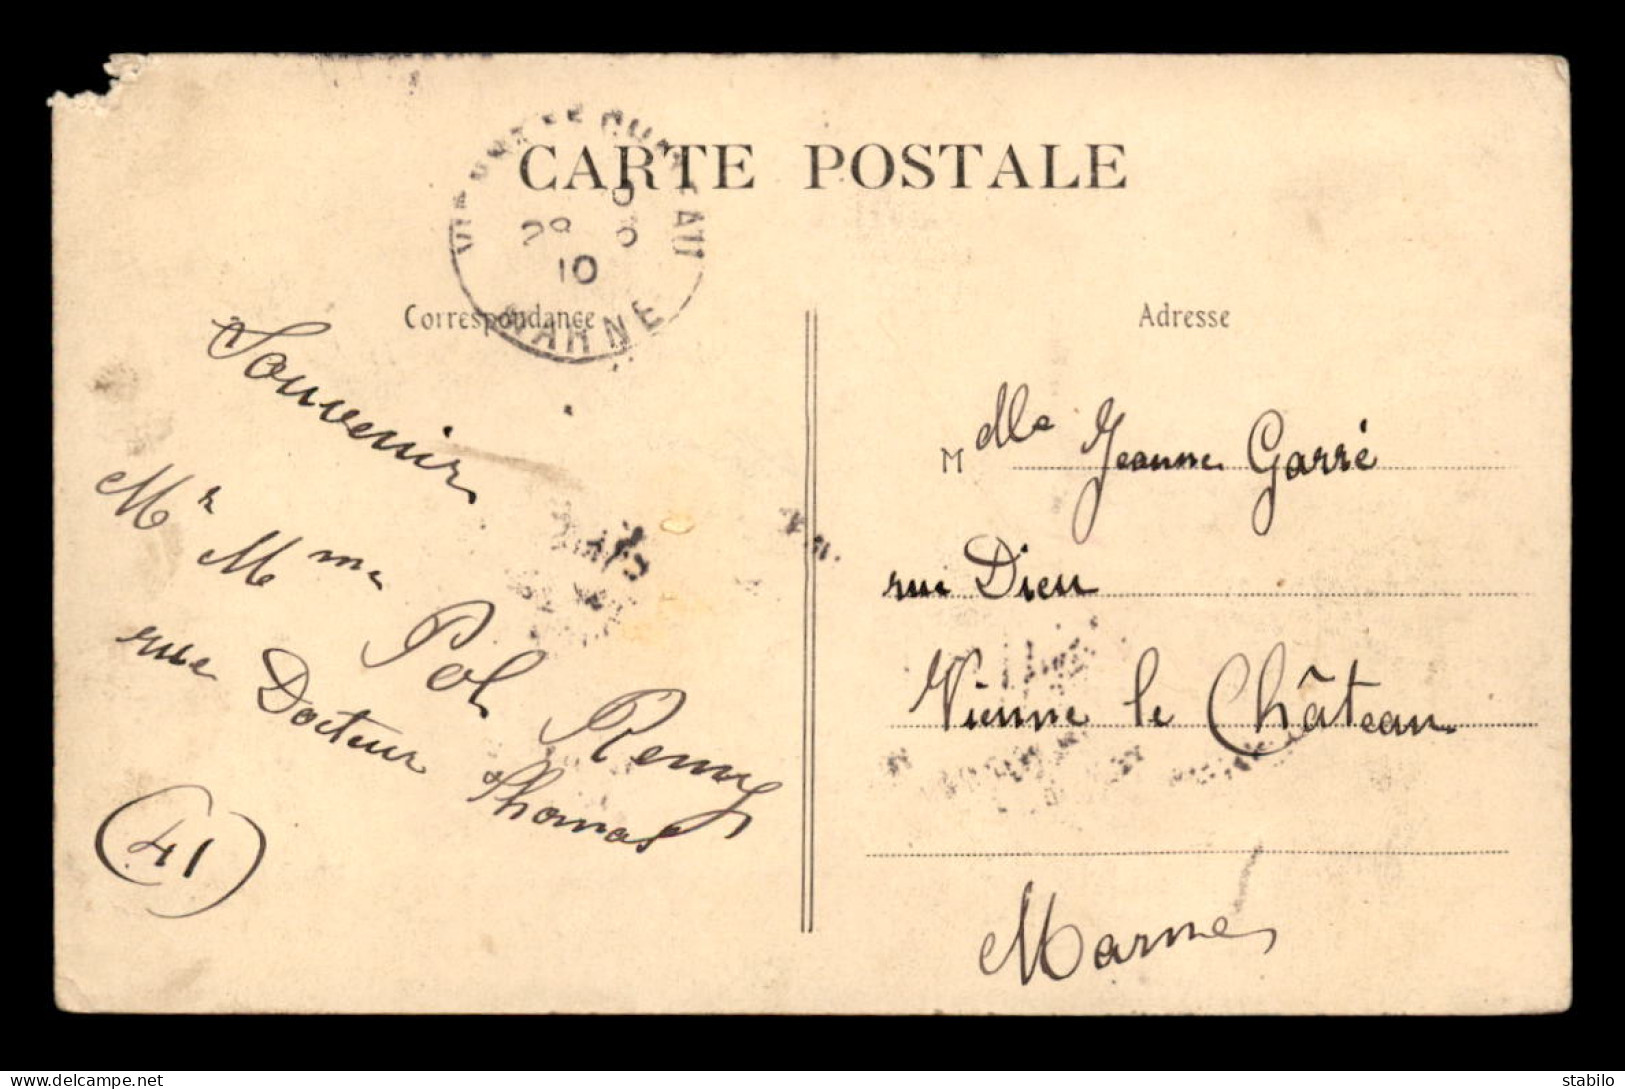 CARTE POSTALE
29 8
10
MARNE
Correspondance
Adresse
Souvenir
Mr Mme Pol Remy
rue Docteur Thomas
(41)
M dlle Jeanne Garré
rue Dieu
Vienne le Château
Marne
delcampe.net
stabilo